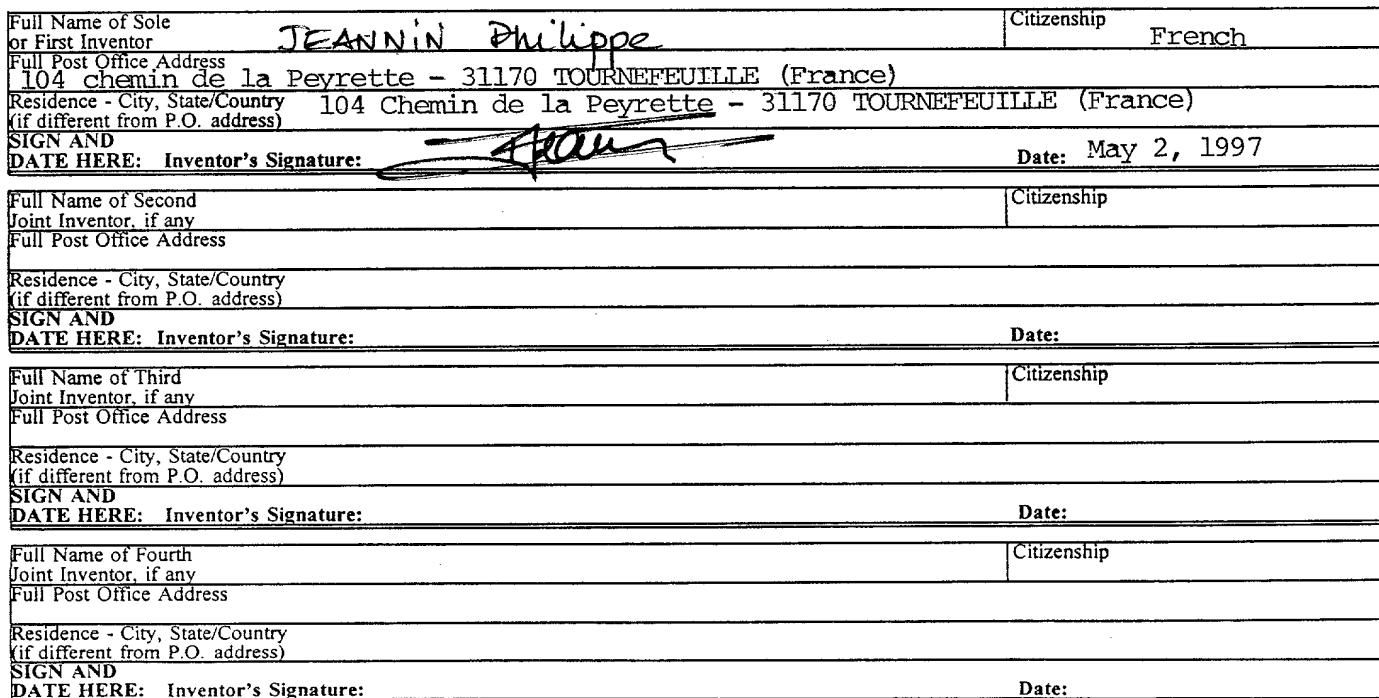 Full Name of Sole
or First Inventor JEANNIN Philippe Citizenship French
Full Post Office Address
104 chemin de la Peyrette - 31170 TOURNEFEUILLE (France)
Residence - City, State/Country 104 Chemin de la Peyrette - 31170 TOURNEFEUILLE (France)
(if different from P.O. address)
SIGN AND
DATE HERE: Inventor's Signature: Date: May 2, 1997
Full Name of Second Citizenship
Joint Inventor, if any
Full Post Office Address
Residence - City, State/Country
(if different from P.O. address)
SIGN AND
DATE HERE: Inventor's Signature: Date:
Full Name of Third Citizenship
Joint Inventor, if any
Full Post Office Address
Residence - City, State/Country
(if different from P.O. address)
SIGN AND
DATE HERE: Inventor's Signature: Date:
Full Name of Fourth Citizenship
Joint Inventor, if any
Full Post Office Address
Residence - City, State/Country
(if different from P.O. address)
SIGN AND
DATE HERE: Inventor's Signature: Date: